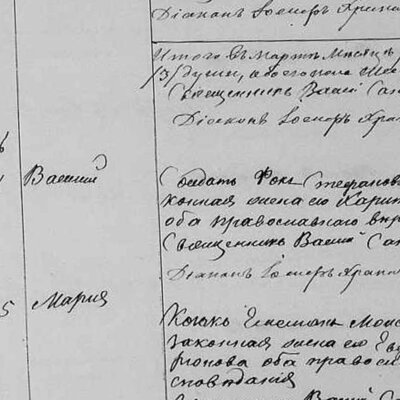 Діаконъ Іосифъ Храп
Итого въ Мартѣ Мѣсяцѣ
/3/ души, обоего пола
Священникъ Васил
Діаконъ Іосифъ Хра
Василий
Солдатъ Фока Стефанов
конная жена его Харит
оба православнаго
Священникъ Васил
Діаконъ Іосифъ Храп
5 Мария
Козакъ Моис
законная жена его Ев
оба правосл
сповѣдания
Васил